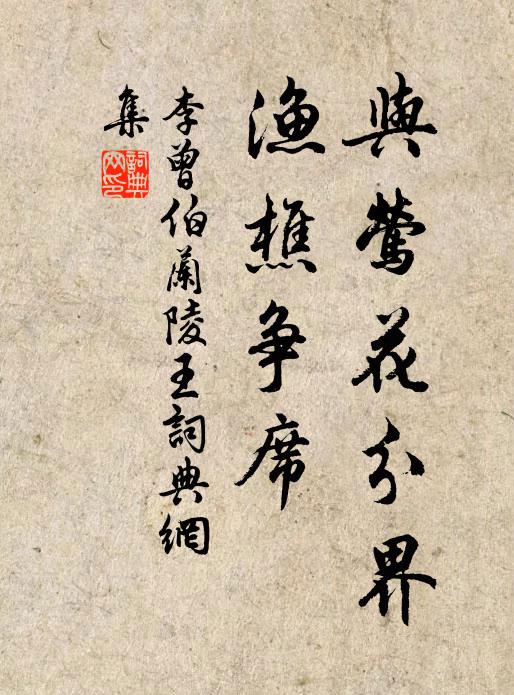 與鶯花分界
漁樵争席
李曾伯蘭陵王詞典網
集
詞典
网印